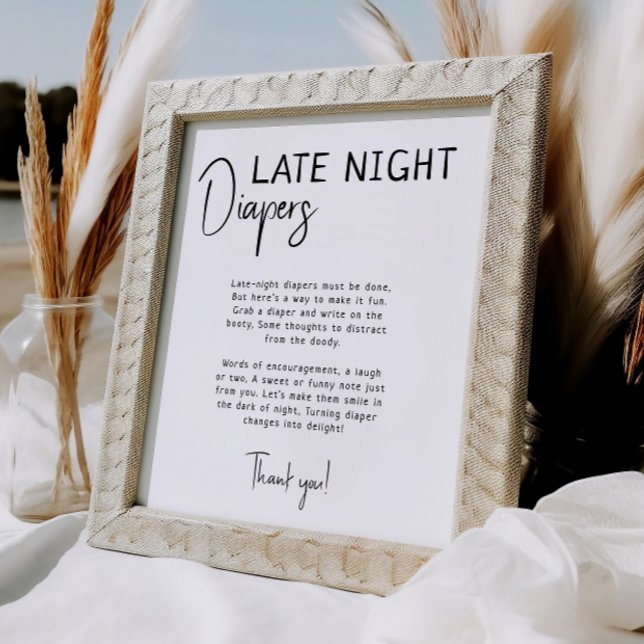 LATE NIGHT
Diapers
Late-night diapers must be done,
But here's a way to make it fun.
Grab a diaper and write on the
booty, Some thoughts to distract
from the doody.
Words of encouragement, a laugh
or two, A sweet or funny note just
from you. Let's make them smile in
the dark of night, Turning diaper
changes into delight!
Thank you!